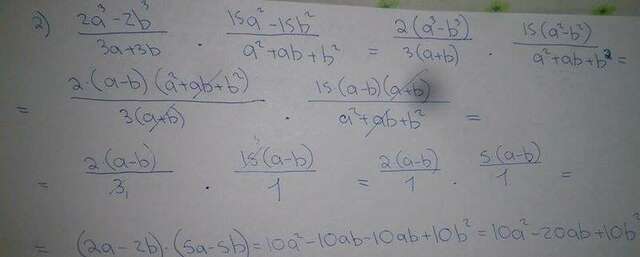 2) (2a³-2b³)/(3a+3b) · (15a²-15b²)/(a²+ab+b²) = 2(a³-b³)/3(a+b) · 15(a²-b²)/(a²+ab+b²) =
= 2·(a-b)(a²+ab+b²)/3(a+b) · 15·(a-b)(a+b)/(a²+ab+b²) =
= 2(a-b)/3₁ · 15⁵(a-b)/1 = 2(a-b)/1 · 5(a-b)/1 =
= (2a-2b)·(5a-5b) = 10a²-10ab-10ab+10b² = 10a²-20ab+10b²